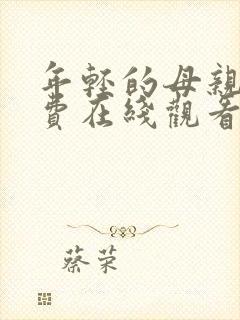 年轻的母親
費在綫觀看
蔡荣